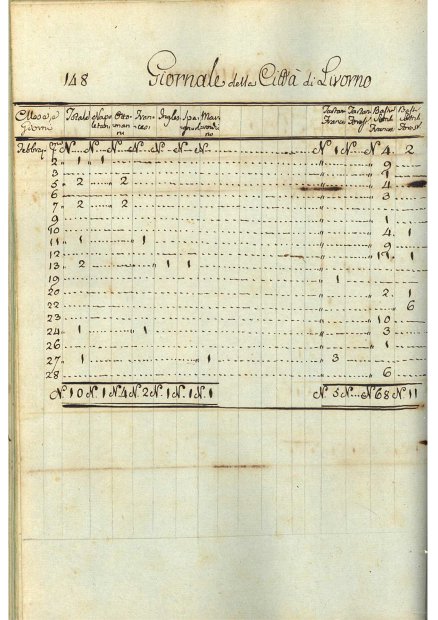 148 Giornale della Città di Livorno
Mese, e Giorni Totale Napoletani Ottomanni Francesi Inglesi Spagnuoli
Febbraio N. N. N. N. N. N. N. N. 1 N. N. 4 2
2 1 1 9
3 1
5 2 2 4
6 3
7 2 2
9 1
10 4 1
11 1 1 9
12 19 1
13 2 1 1
19 1
20 2 1
22 6
23 10
24 1 1 3
26 1
27 1 1 3
28 6
N. 10 N. 1 N. 4 N. 2 N. 1 N. 1 N. 1 N. 5 N. N. 68 N. 11